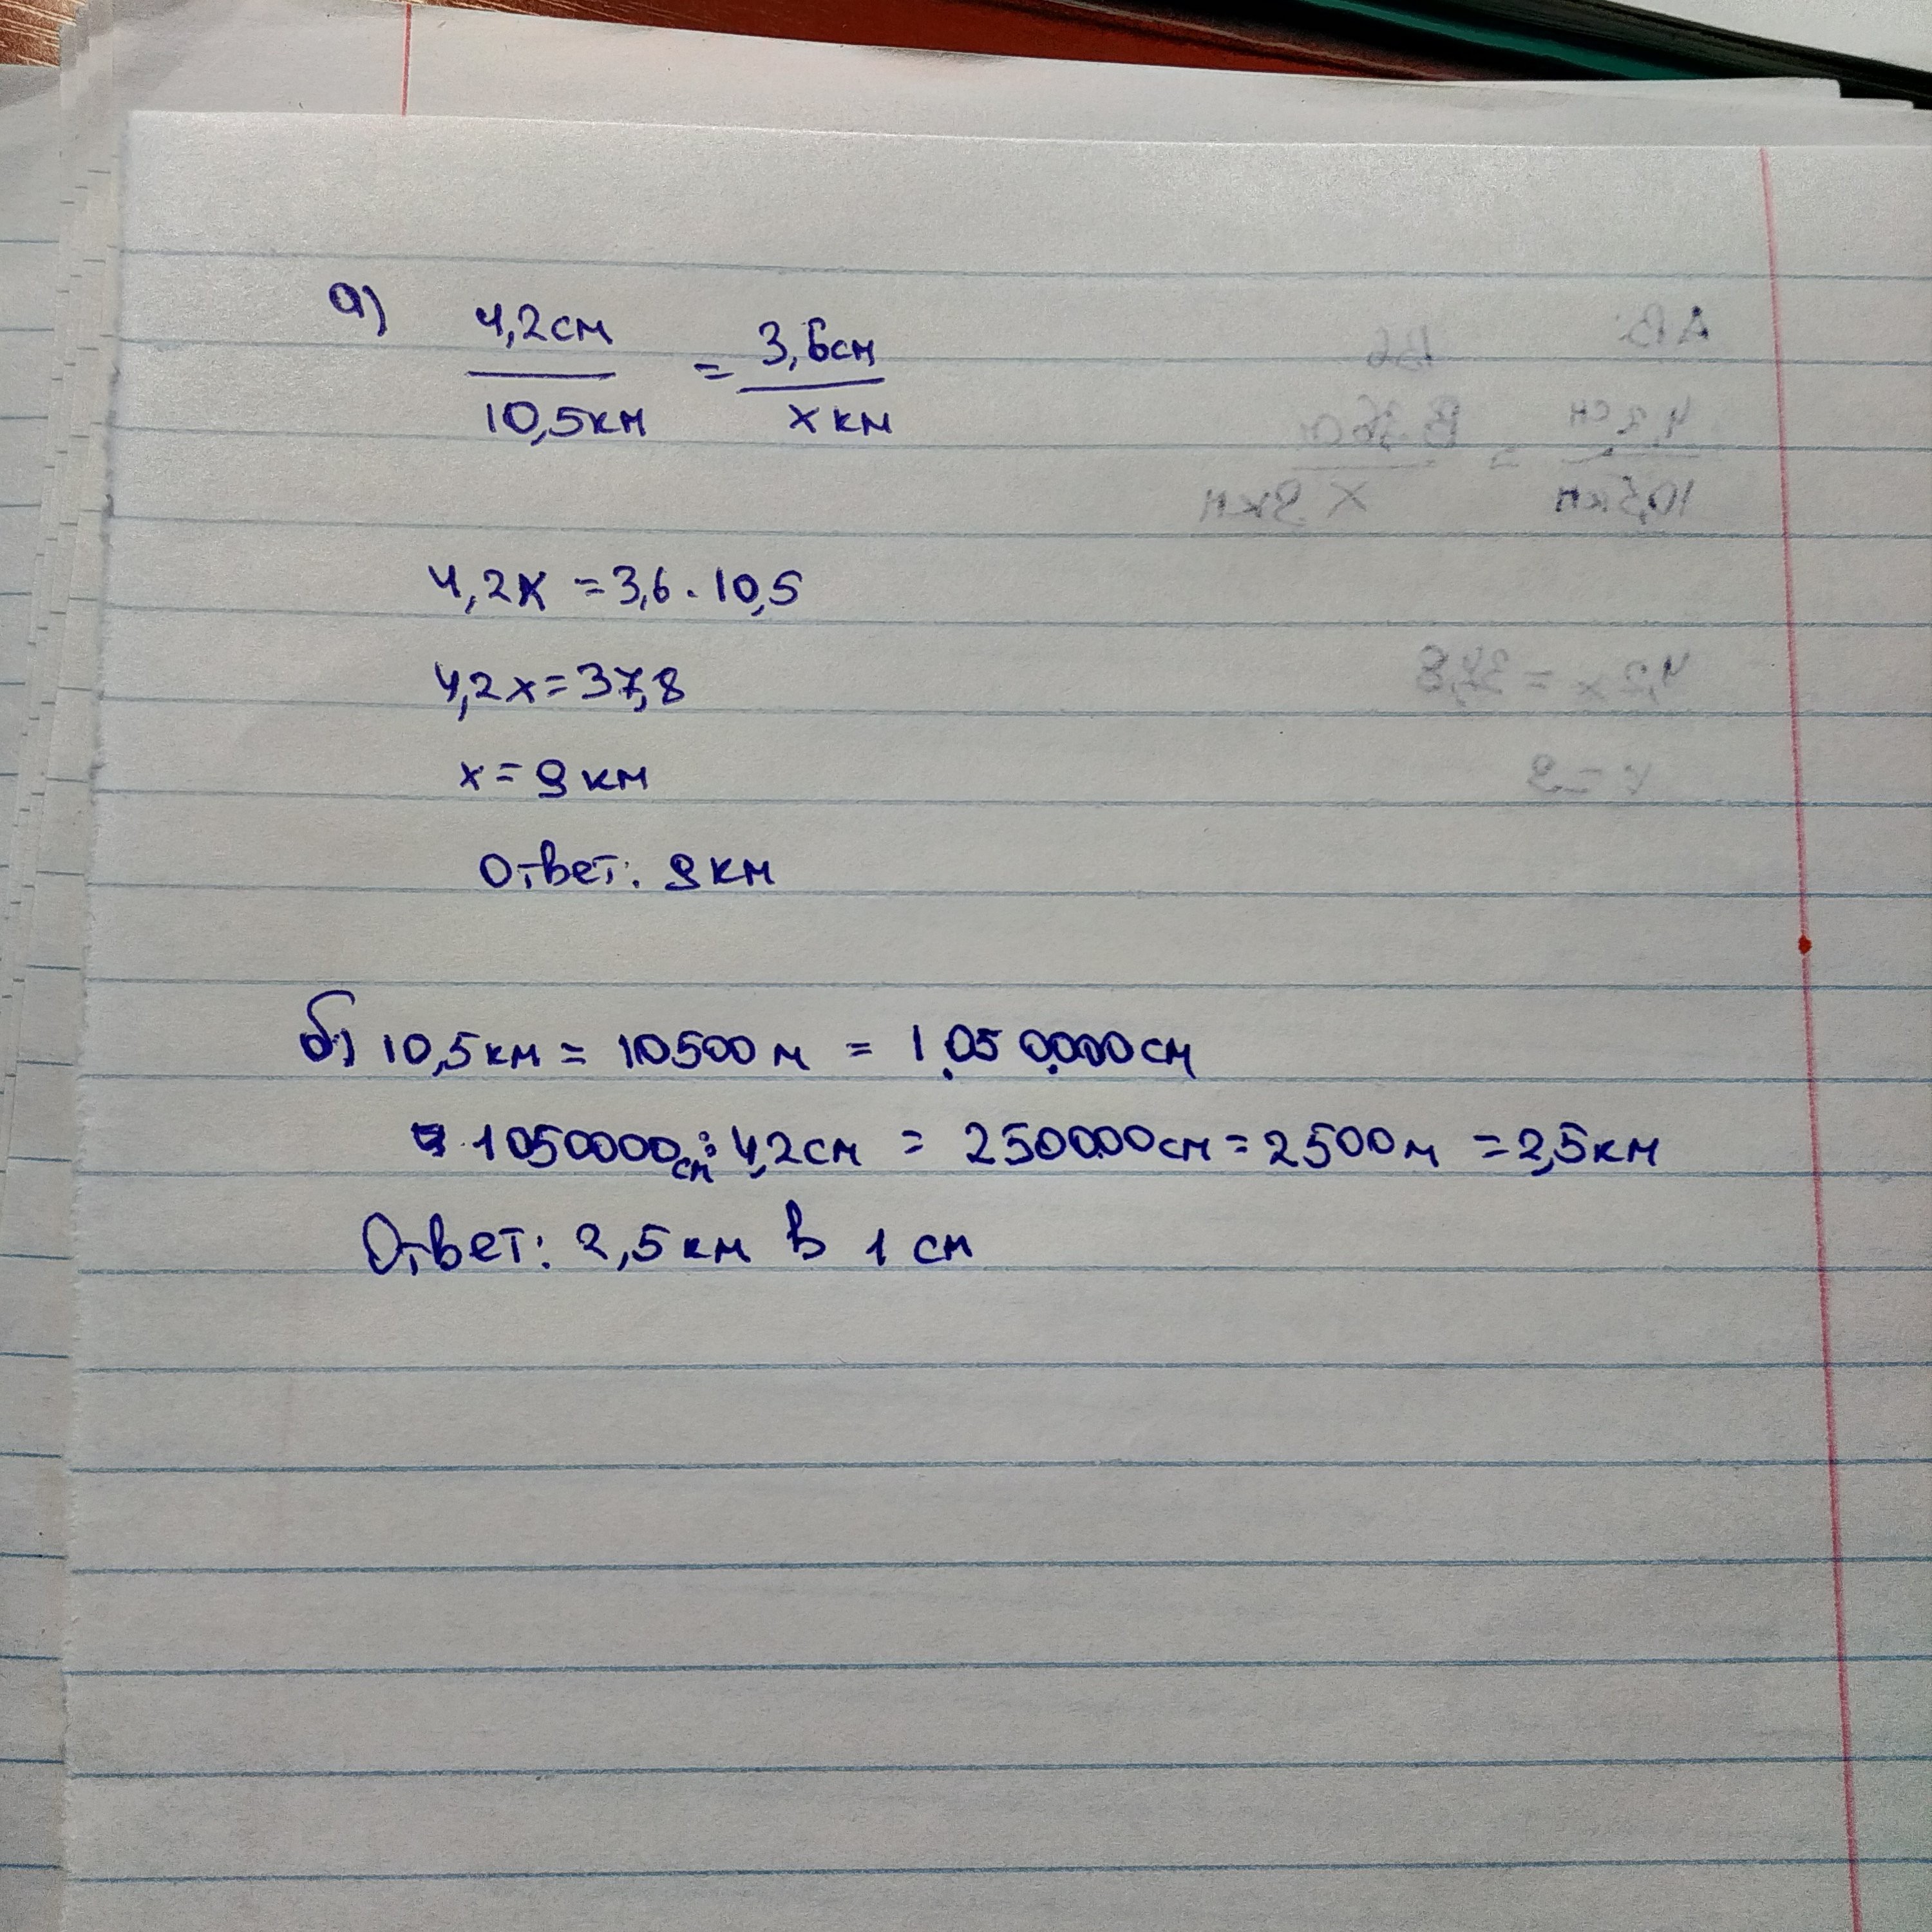 а) 4,2см / 10,5км = 3,6см / x км
4,2x = 3,6 · 10,5
4,2x = 37,8
x = 9 км
Ответ: 9 км
б) 10,5 км = 10500 м = 1.050.000 см
1050000см : 4,2см = 250000см = 2500м = 2,5км
Ответ: 2,5 км в 1 см